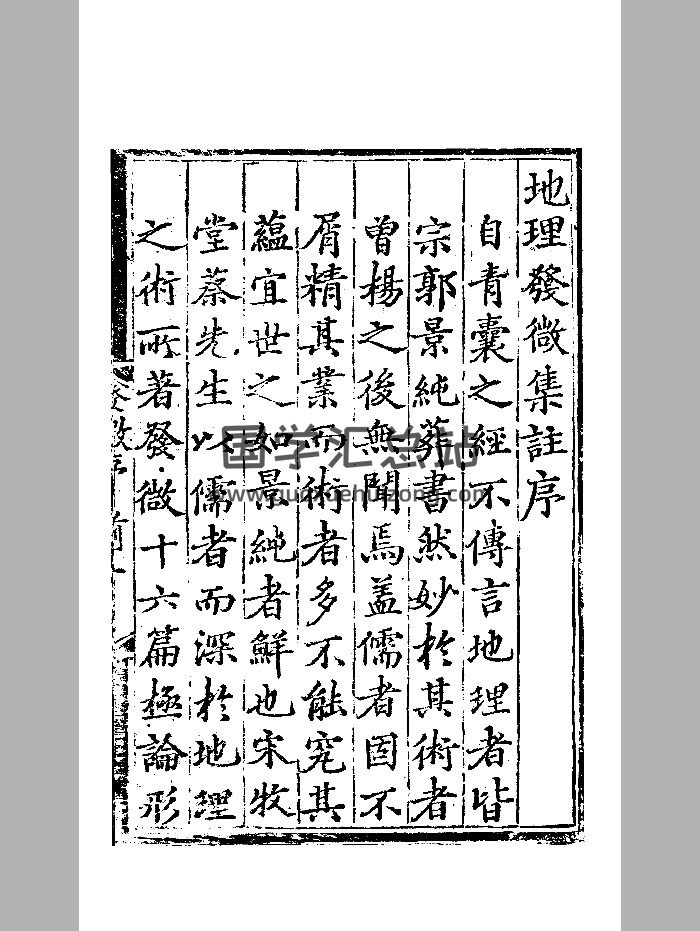 地理發微集註序
自青囊之經不傳言地理者皆
宗郭景純葬書然妙於其術者
曾楊之後無聞焉蓋儒者固不
屑精其業而術者多不能究其
蘊宜世之如景純者鮮也宋牧
堂蔡先生以儒者而深於地理
之術所著發微十六篇極論形
国学汇总站
www.guoxuehuizong.com